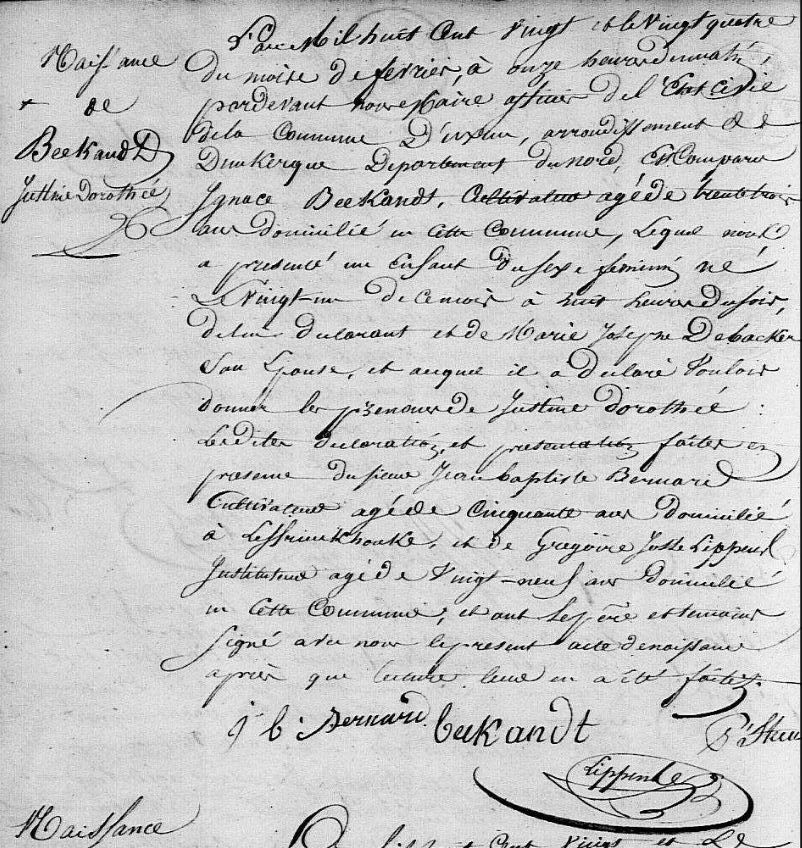 Naissance
de
BeekandT
Justine Dorothée
L'an Mil huit Cent Vingt et le Vingt quatre
du mois de fevrier, à onze heures du matin
pardevant nous Maire officier de l'Etat Civil
de la Commune D'uxem, arrondissement de
Dunkerque Departement du nord, Est Comparu
Ignace Beekandt, Cultivateur agé de trente trois
ans domicilié en Cette Commune, Lequel nous
a presenté un Enfant du sexe feminin né
Le Vingt-un de ce mois à huit heures du soir,
de lui declarant et de Marie Josephe Debacker
Son Epouse, et auquel il a declaré Vouloir
donner les prenoms de Justine Dorothée :
Lesdites declaration et presentation faites en
presence du sieur Jean baptiste Bernard
Cultivateur agé de Cinquante ans domicilié
à Leffrinckhouke, et de Gregoire Josse Lippens
Instituteur agé de Vingt-neuf ans domicilié
en Cette Commune, et ont Les père et temoins
signé avec nous le present acte de naissance
après que lecture leur en a été faite.
j b Bernard beekandt
Naissance
Cent Vingt et Le